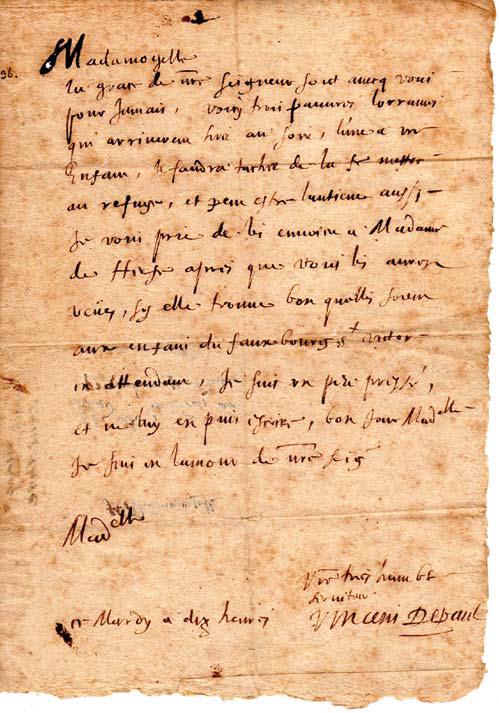 96.
Madamoyselle
La grace de nre Seigneur soit avecq vous
pour Jamais, voicy trois pauvres lorraines
qui arriverent hier au soir, l'une a un
Enfant, Il faudra tacher de la mettre
au refuge, et peut estre l'antiene aussi
Je vous prie de les envoier a Madame
de Herse apres que vous les aurez
veües, sy elle trouve bon quelles soient
aux enfans du faux bourg St victor
en attendant, Je suis un peu pressé,
et ne luy en puis escrire, bon Jour Madelle
Je suis en l'amour de nre Seigr
Madelle
Vre tres humble
serviteur
Vincent Depaul
ce Mardy a dix heures